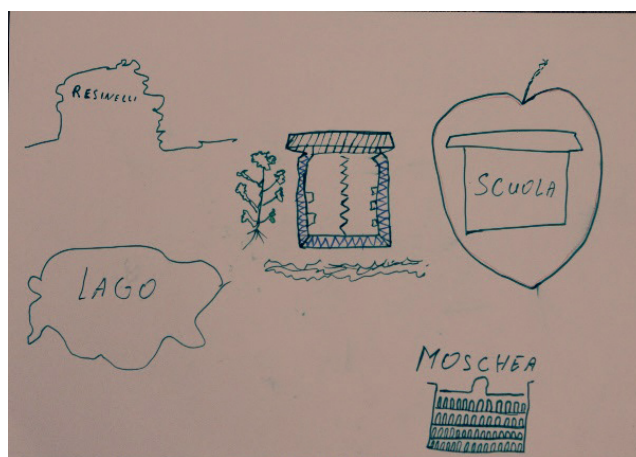 RESINELLI
SCUOLA
LAGO
MOSCHEA